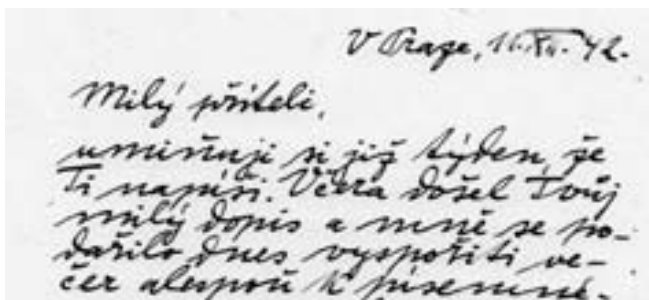 V Praze, 11.XII. 42.
Milý příteli,
umiňuji si již týden, že
Ti napíši. Včera došel Tvůj
milý dopis a mně se po-
dařilo dnes vyspořiti ve-
čer alespoň k písemné-